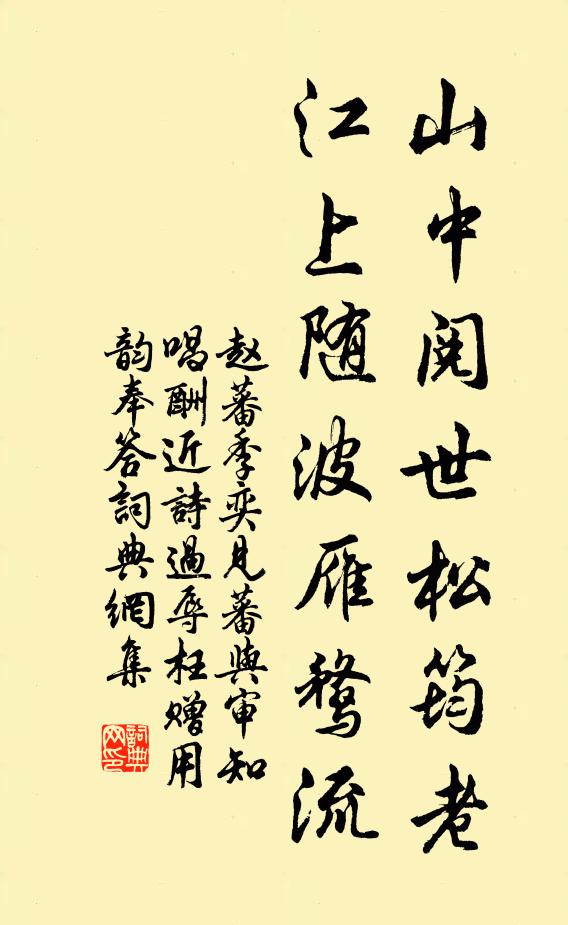 山中閱世松筠老
江上随波雁鶩流
赵蕃季奕見蕃與审知
唱酬近詩過辱枉赠用
韵奉答詞典網集
詞典网印